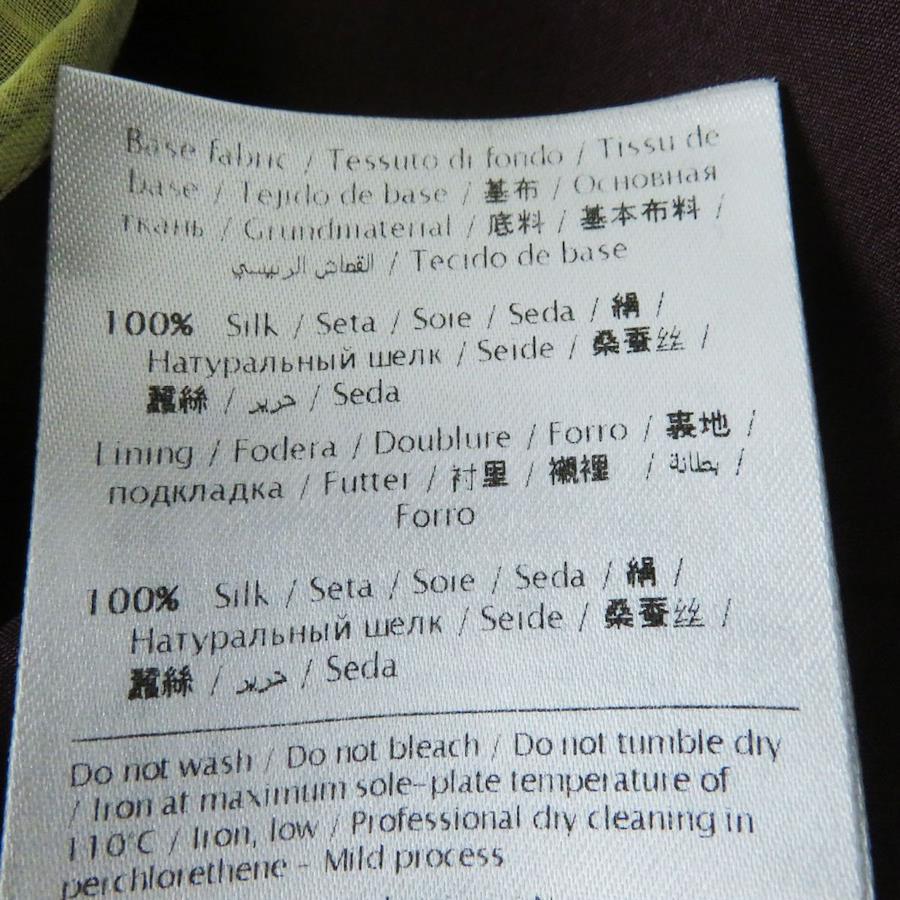 Base fabric / Tessuto di fondo / Tissu de
base / Tejido de base / 基布 / Основная
ткань / Grundmaterial / 底料 / 基本布料 /
القماش الرييسي / Tecido de base
100% Silk / Seta / Soie / Seda / 絹 /
Натуральный шелк / Seide / 桑蚕丝 /
蠶絲 / حرير / Seda
Lining / Fodera / Doublure / Forro / 裏地 /
подкладка / Futter / 衬里 / 襯裡 / بطانة /
Forro
100% Silk / Seta / Soie / Seda / 絹 /
Натуральный шелк / Seide / 桑蚕丝 /
蠶絲 / حرير / Seda
Do not wash / Do not bleach / Do not tumble dry
/ Iron at maximum sole-plate temperature of
110°C / Iron, low / Professional dry cleaning in
perchlorethene - Mild process